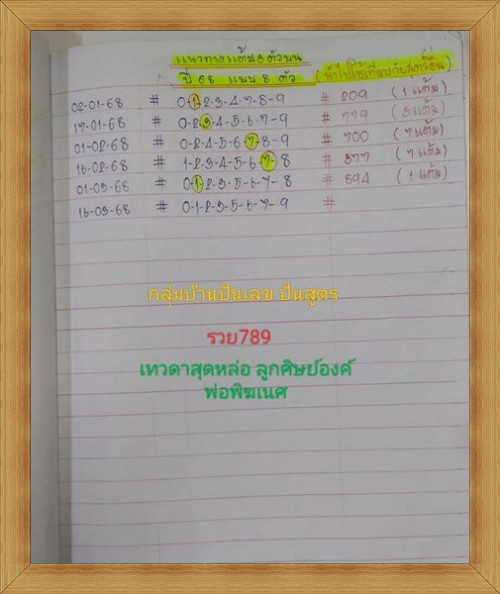 แนวทางแต้ม 3 ตัวบน
ปี 68 แบบ 8 ตัว (นำไปใช้เทียบกับสูตรอื่น)
02-01-68 # 0-1-2-3-4-7-8-9 # 209 (1 แต้ม)
17-01-68 # 0-2-3-4-5-6-7-9 # 779 (3 แต้ม)
01-02-68 # 0-2-4-5-6-7-8-9 # 700 (7 แต้ม)
16-02-68 # 1-2-3-4-5-6-7-8 # 377 (7 แต้ม)
01-03-68 # 0-1-2-3-5-6-7-8 # 894 (1 แต้ม)
16-03-68 # 0-1-2-3-5-6-7-9 #
กลุ่มบ้านปันเลข ปันสูตร
รวย789
เทวดาสุดหล่อ ลูกศิษย์องค์
พ่อพิฆเนศ